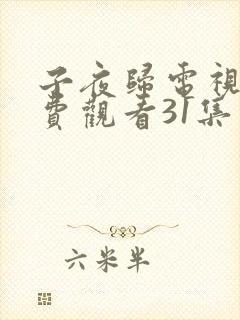 子夜歸電視
費觀看31集
六米半